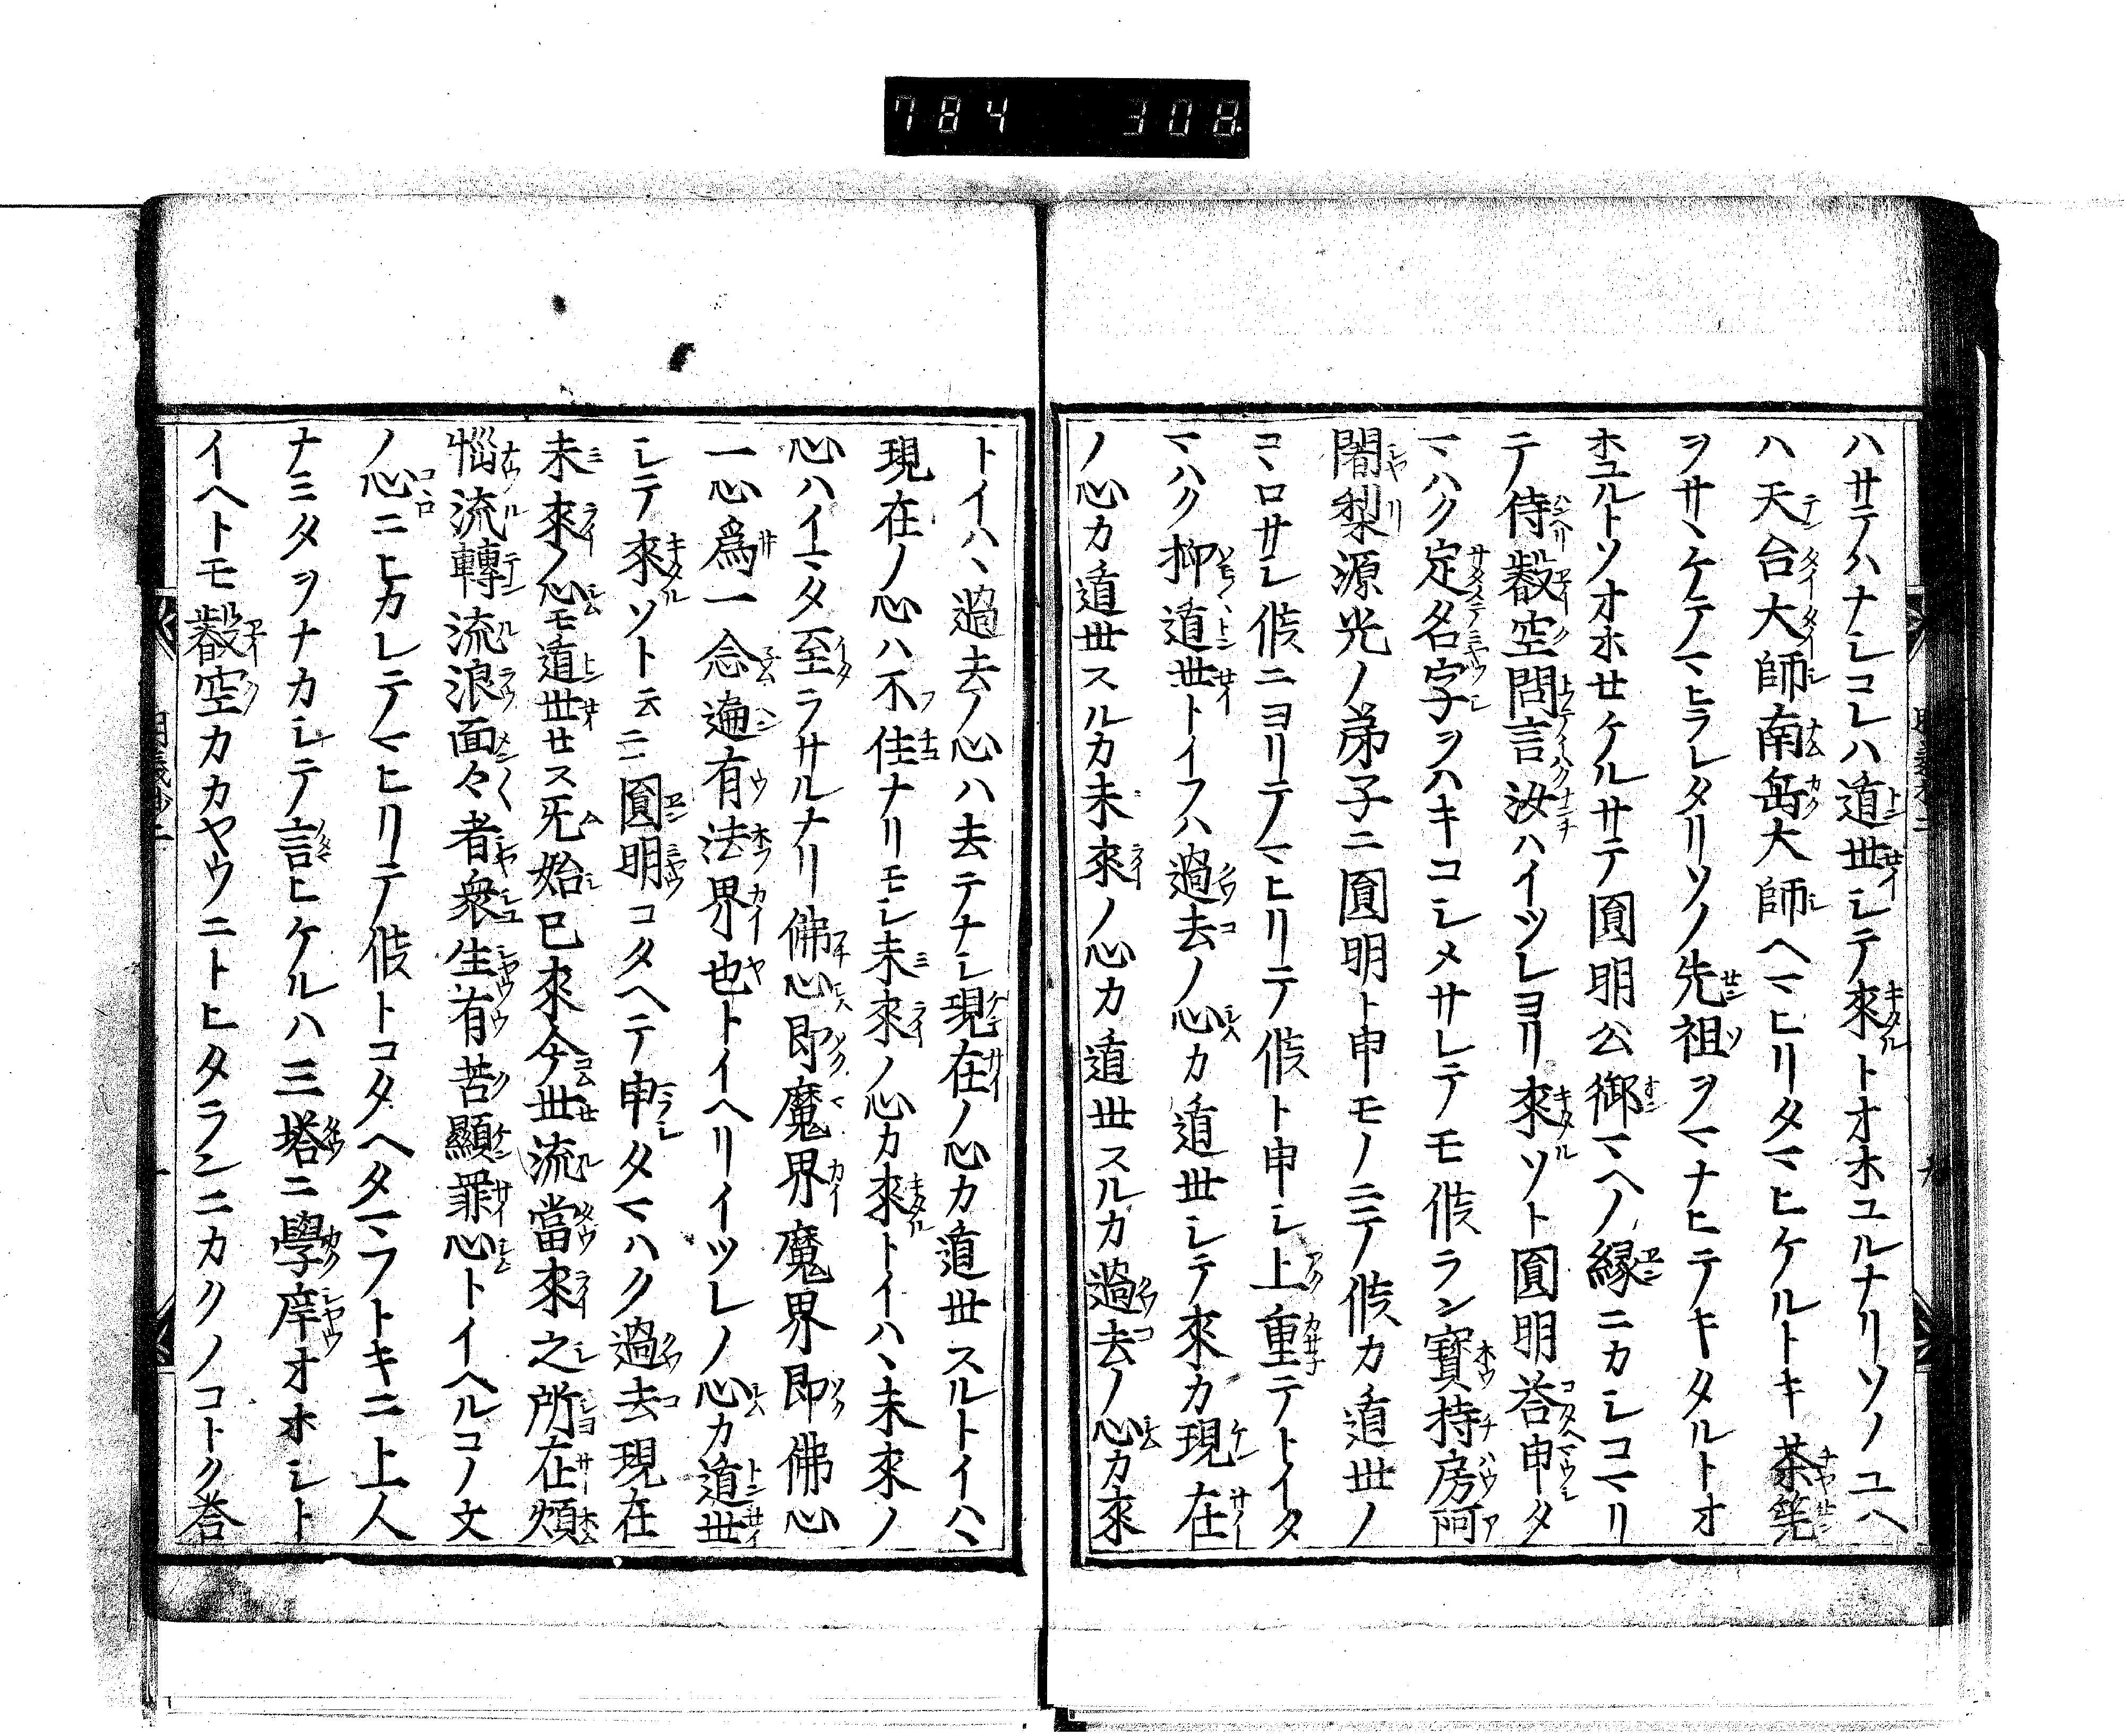 784 308
ハサテハナシコレハ遁世シテ來トオホユルナリソノユヘ
ハ天台大師南岳大師ヘマヒリタマヒケルトキ茶筅
ヲサヽケテノマヒラレタリソノ先祖ヲノマナヒテキタルトオ
ホユルトソオホセケルサテ圓明公御マヘノ縁ニカシコマリ
テ侍叡空問言汝ハイツレヨリ來ソト圓明荅申タ
マハク定名字ヲハキコシメサレテモ候ラン寳持房阿
闍梨源光ノ弟子ニ圓明ト申モノニテノ候カ遁世ノ
コヽロサシ候ニヨリテノマヒリテ候ト申シ上重テトイタ
マハク抑遁世トイフハ過去ノ心カ遁世シテ來カ現在
ノ心カ遁世スルカ未來ノ心カ遁世スルカ過去ノ心カ來
トイハヽ過去ノ心ハ去テナシ現在ノ心カ遁世スルトイハヽ
現在ノ心ハ不住ナリモシ未來ノ心カ來トイハヽ未來ノ
心ハイマタ至ラサルナリ佛心即魔界魔界即佛心
一心爲一念遍有法界也トイヘリイツレノ心カ遁世
シテ來ソト云ニ圓明コタヘテ申タマハク過去現在
未來ノ心モ遁世セス旡始已來今世流當來之所在煩
惱流轉流浪面々者衆生有苦顯罪心トイヘルコノ文
ノ心ニヒカレテノマヒリテ候トコタヘタマフトキニ上人
ナミタヲナカシテノ言ヒケルハ三塔ニ學庠オオホシト
イヘトモ叡空カカヤウニトヒタランニカクノコトク荅